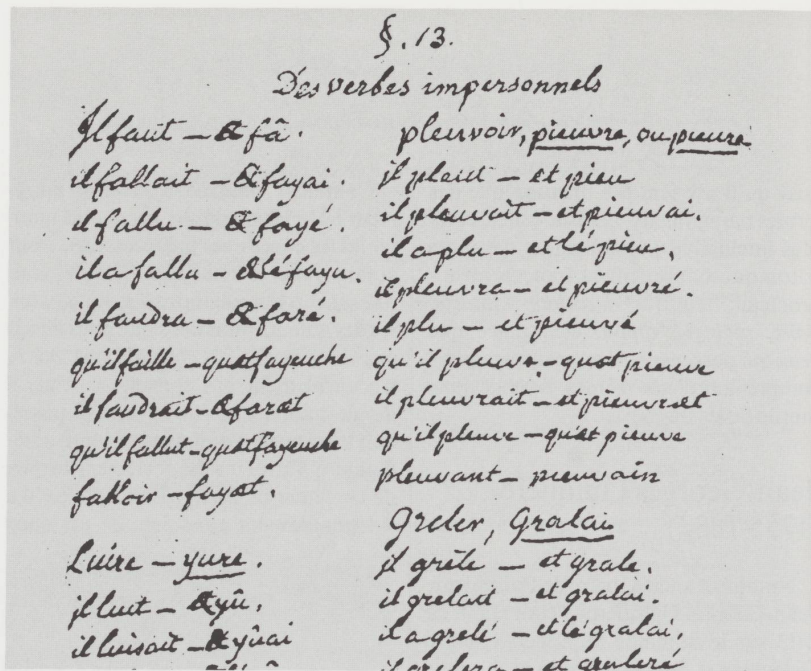 §. 13.
Des verbes impersonnels
Il faut - et fâ.
il fallait - et fayai.
il fallu - et fayé.
il a fallu - et lé fayu.
il faudra - et faré.
qu'il faille - quet fayeuche
il faudrait - et faret
qu'il fallut - quet fayeuche
falloir - fayet.
Luire - yure.
il luit - et yû.
il luisait - et yûai
pleuvoir, pieuvre, ou pieure
il pleut - et pieu
il pleuvait - et pieuvai.
il a plu - et lé pieu.
il pleuvra - et pieuvré.
il plu - et pieuvé
qu'il pleuve. - quet pieuve
il pleuvrait - et pieuvret
qu'il pleuve - quet pieuve
pleuvant - pieuvain
Greler, Gralai
il grêle - et grale.
il grelait - et gralai.
il a grelé - et lé gralai.
il grelera - et graleré